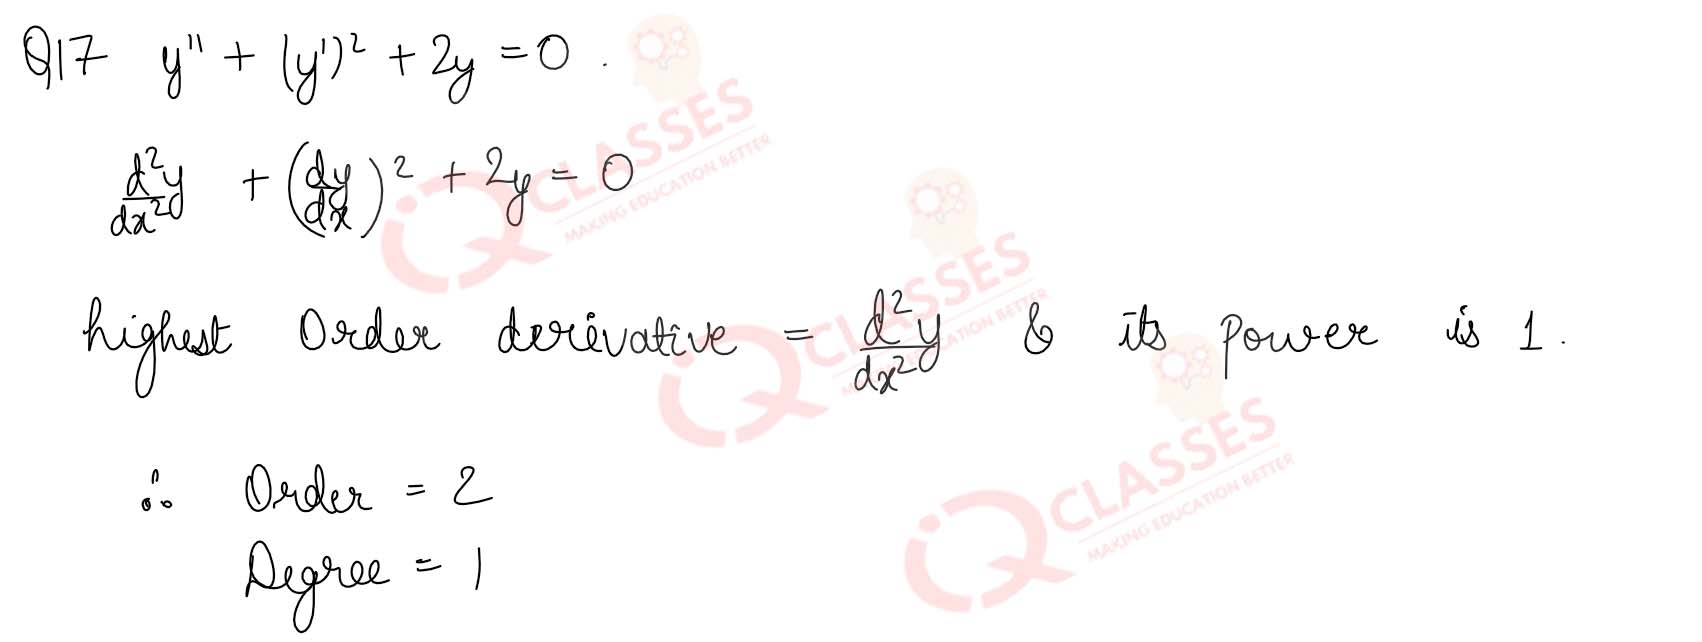 Q17 y'' + (y')² + 2y = 0 .
d²y/dx² + (dy/dx)² + 2y = 0
highest Order derivative = d²y/dx² & its power is 1.
∴ Order = 2
Degree = 1
iQ CLASSES
MAKING EDUCATION BETTER
iQ CLASSES
MAKING EDUCATION BETTER
iQ CLASSES
MAKING EDUCATION BETTER